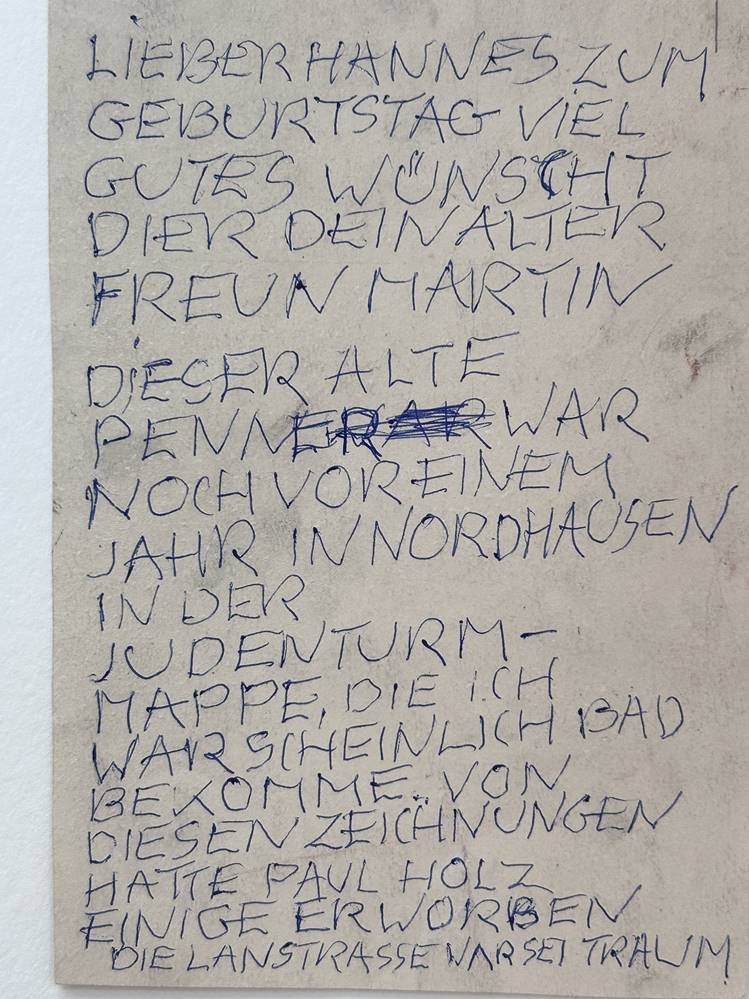 LIEBER HANNES ZUM
GEBURTSTAG VIEL
GUTES WÜNSCHT
DIER DEIN ALTER
FREUN MARTIN
DIESER ALTE
PENNER WAR
NOCH VOR EINEM
JAHR IN NORDHAUSEN
IN DER
JUDENTURM-
MAPPE, DIE ICH
WARSCHEINLICH BAD
BEKOMME. VON
DIESEN ZEICHNUNGEN
HATTE PAUL HOLZ
EINIGE ERWORBEN
DIE LANSTRASSE WAR SEI TRAUM